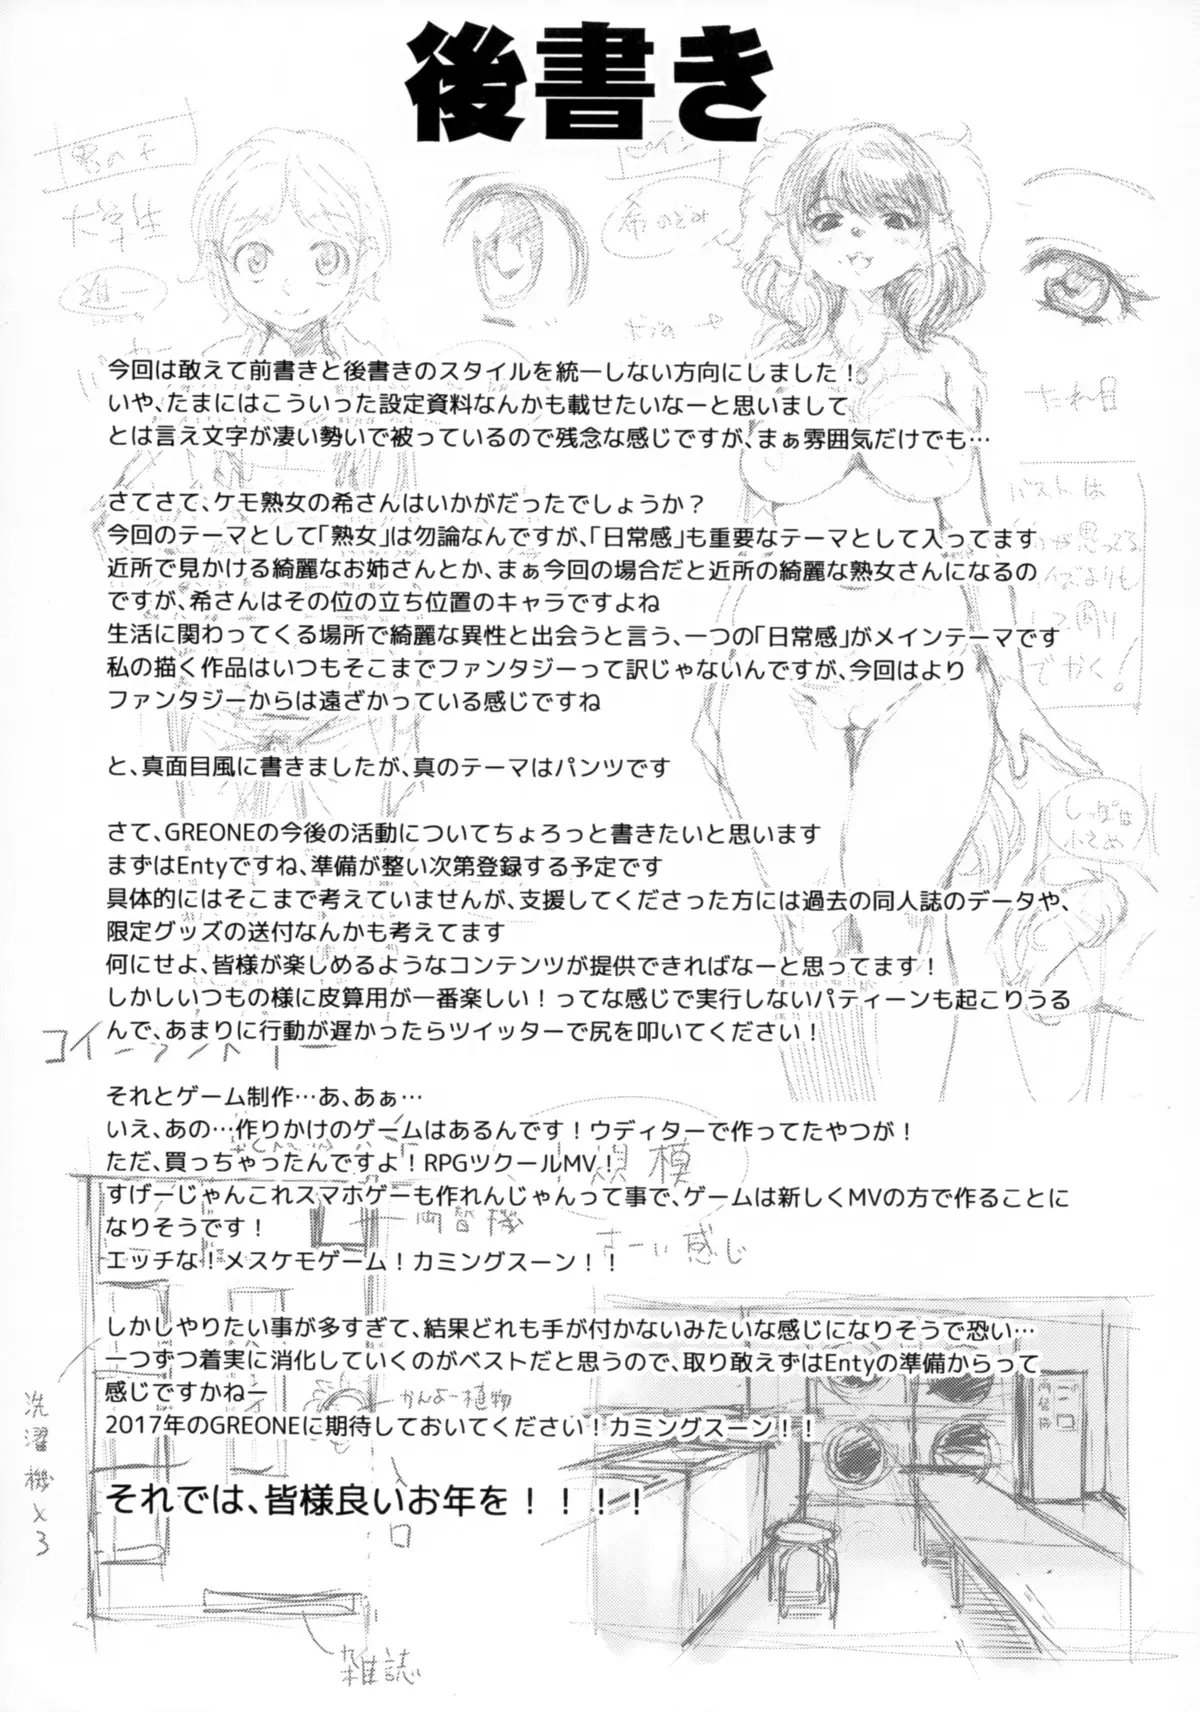 後書き
男の子
大学生
希のぞみ
たれ目
今回は敢えて前書きと後書きのスタイルを統一しない方向にしました！
いや、たまにはこういった設定資料なんかも載せたいなーと思いまして
とは言え文字が凄い勢いで被っているので残念な感じですが、まぁ雰囲気だけでも…
さてさて、ケモ熟女の希さんはいかがだったでしょうか？
今回のテーマとして「熟女」は勿論なんですが、「日常感」も重要なテーマとして入ってます
近所で見かける綺麗なお姉さんとか、まぁ今回の場合だと近所の綺麗な熟女さんになるの
ですが、希さんはその位の立ち位置のキャラですよね
生活に関わってくる場所で綺麗な異性と出会うと言う、一つの「日常感」がメインテーマです
私の描く作品はいつもそこまでファンタジーって訳じゃないんですが、今回はより
ファンタジーからは遠ざかっている感じですね
バストは
でかく！
と、真面目風に書きましたが、真のテーマはパンツです
しっぽは
小さめ
さて、GREONEの今後の活動についてちょろっと書きたいと思います
まずはEntyですね、準備が整い次第登録する予定です
具体的にはそこまで考えていませんが、支援してくださった方には過去の同人誌のデータや、
限定グッズの送付なんかも考えてます
何にせよ、皆様が楽しめるようなコンテンツが提供できればなーと思ってます！
しかしいつもの様に皮算用が一番楽しい！ってな感じで実行しないパティーンも起こりうる
んで、あまりに行動が遅かったらツイッターで尻を叩いてください！
コインランドリー
それとゲーム制作…あ、あぁ…
いえ、あの…作りかけのゲームはあるんです！ウディターで作ってたやつが！
ただ、買っちゃったんですよ！RPGツクールMV！
すげーじゃんこれスマホゲーも作れんじゃんって事で、ゲームは新しくMVの方で作ることに
なりそうです！
両替機
すーい感じ
エッチな！メスケモゲーム！カミングスーン！！
しかしやりたい事が多すぎて、結果どれも手が付かないみたいな感じになりそうで恐い…
一つずつ着実に消化していくのがベストだと思うので、取り敢えずはEntyの準備からって
感じですかねー
かんよー植物
2017年のGREONEに期待しておいてください！カミングスーン！！
洗濯機×3
それでは、皆様良いお年を！！！！
雑誌